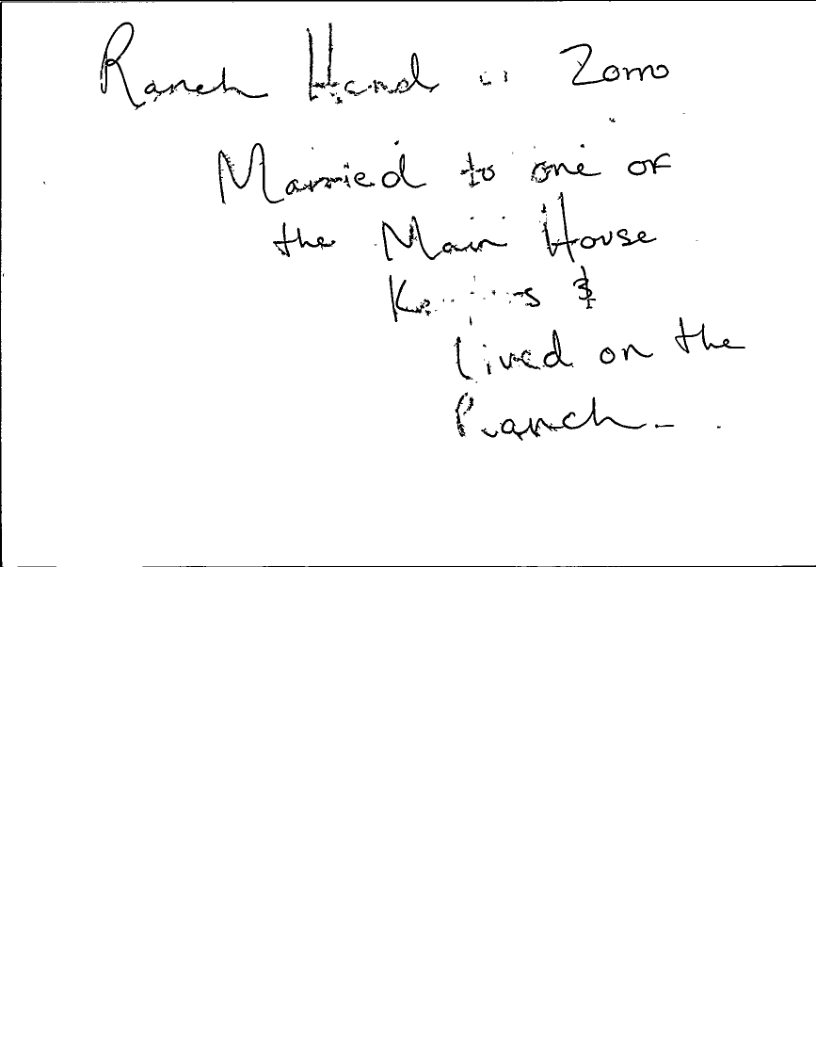 Ranch Hand Zorro
Married to one of
the Main House
&
lived on the
Ranch -